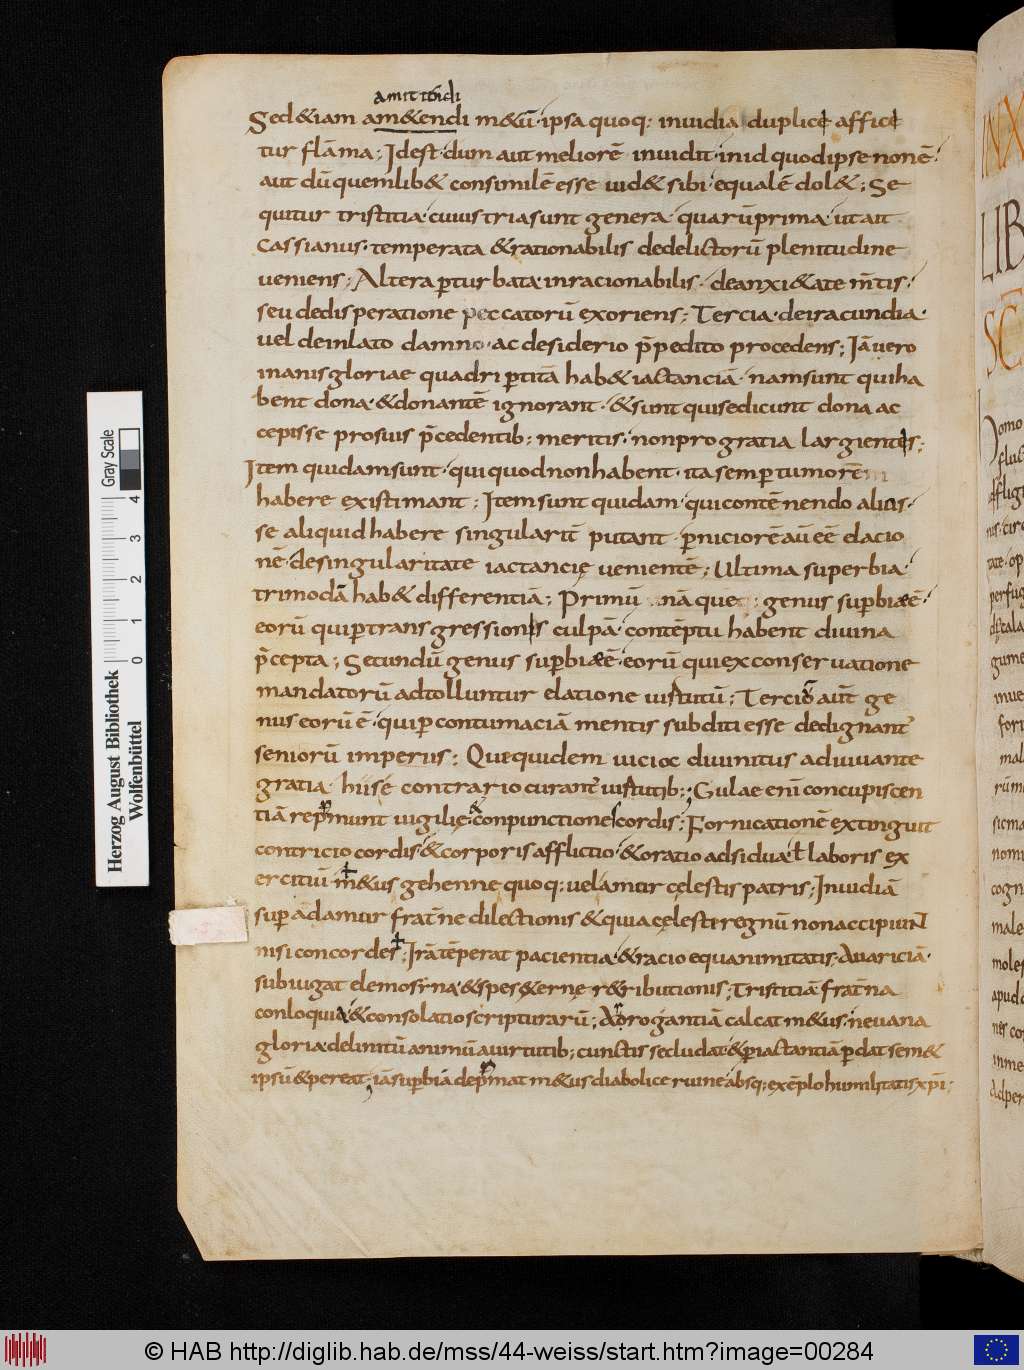 amittendi
Sed &iam am&endi m&ū· ipsa quoq: inuidia duplice affice
tur flāma; Idest· dum aut meliorē inuidit· in id quod ipse nonē·
aut dū quemlib& consimilē esse uid& sibi· equalē dol&; Se
quitur tristitia· cuius tria sunt genera· quarū prima· ut ait
cassianus· temperata &rationabilis de delictorū plenitudine
ueniens; Altera ꝑturbata· inracionabilis· de anxi&ate m̄tis·
seu de disperatione peccatorū exoriens; Tercia· de iracundia·
uel de inlato damno· ac desiderio p̄pedito procedens; Iā uero
inanis gloriae quadriꝑtitā hab& iactanciā· nam sunt qui ha
bent dona· &donantē ignorant· &sunt qui se dicunt dona ac
cepisse pro suis p̄cedentib; meritis· non pro gratia largientis;
Item quidam sunt· qui quod non habent· ita semꝑ tumorē
habere existimant; Item sunt quidam· qui contēnendo alios·
se aliquid habere singularit̄ putant· ꝑniciorē aū eē elacio
nē· de singularitate iactancię uenientē; Ultima superbia·
trimodā hab& differentiā; Primū nāque genus suꝑbiæ ē·
eorū qui ꝑ transgressionis culpā· contēptu habent diuina
p̄cepta; Secundū genus suꝑbiæ ē· eorū qui ex conseruatione
mandatorū adtolluntur elatione uirtutū; Tercio aut̄ ge
nus eorū ē· qui ꝑ contumaciā mentis subditi esse dedignant̄
seniorū imperiis; Que quidem uicioc diuinitus adiuuante
gratia hii se contrario curant̄ uirtutib:; Gulae enī concupiscen
tiā rep̄munt uigilię &conpunctione cordis; Fornicationē extinguit
contricio cordis· &corporis afflictio· &oratio adsidua· ł laboris ex
ercitiū· m&us gehenne quoq; uel amor cęlestis patris; Inuidiā
suꝑat amor frat̄ne dilectionis &quia cęleste regnū non accipiunt
nisi concordes; Irā tēperat pacientia· &racio equanimitatis· Auariciā·
subiugat elemosȳna· &spes &ernę r&ributionis; Tristitiā frat̄na
conloquia· &consolatio scripturarū; Adrogantiā calcat m&us· ne uana
gloria· delinitū animū a uirtutib; cunctis secludat· &ꝑ iactantiā ꝑdat sem&
ipsū &pereat; iā suꝑbiā dep̄mat m&us diabolice ruine absq; exēplo humilitatis xp̄i;
Herzog August Bibliothek
Wolfenbüttel
0 1 2 3 4
Gray Scale
INX
LIB
SC
© HAB http://diglib.hab.de/mss/44-weiss/start.htm?image=00284